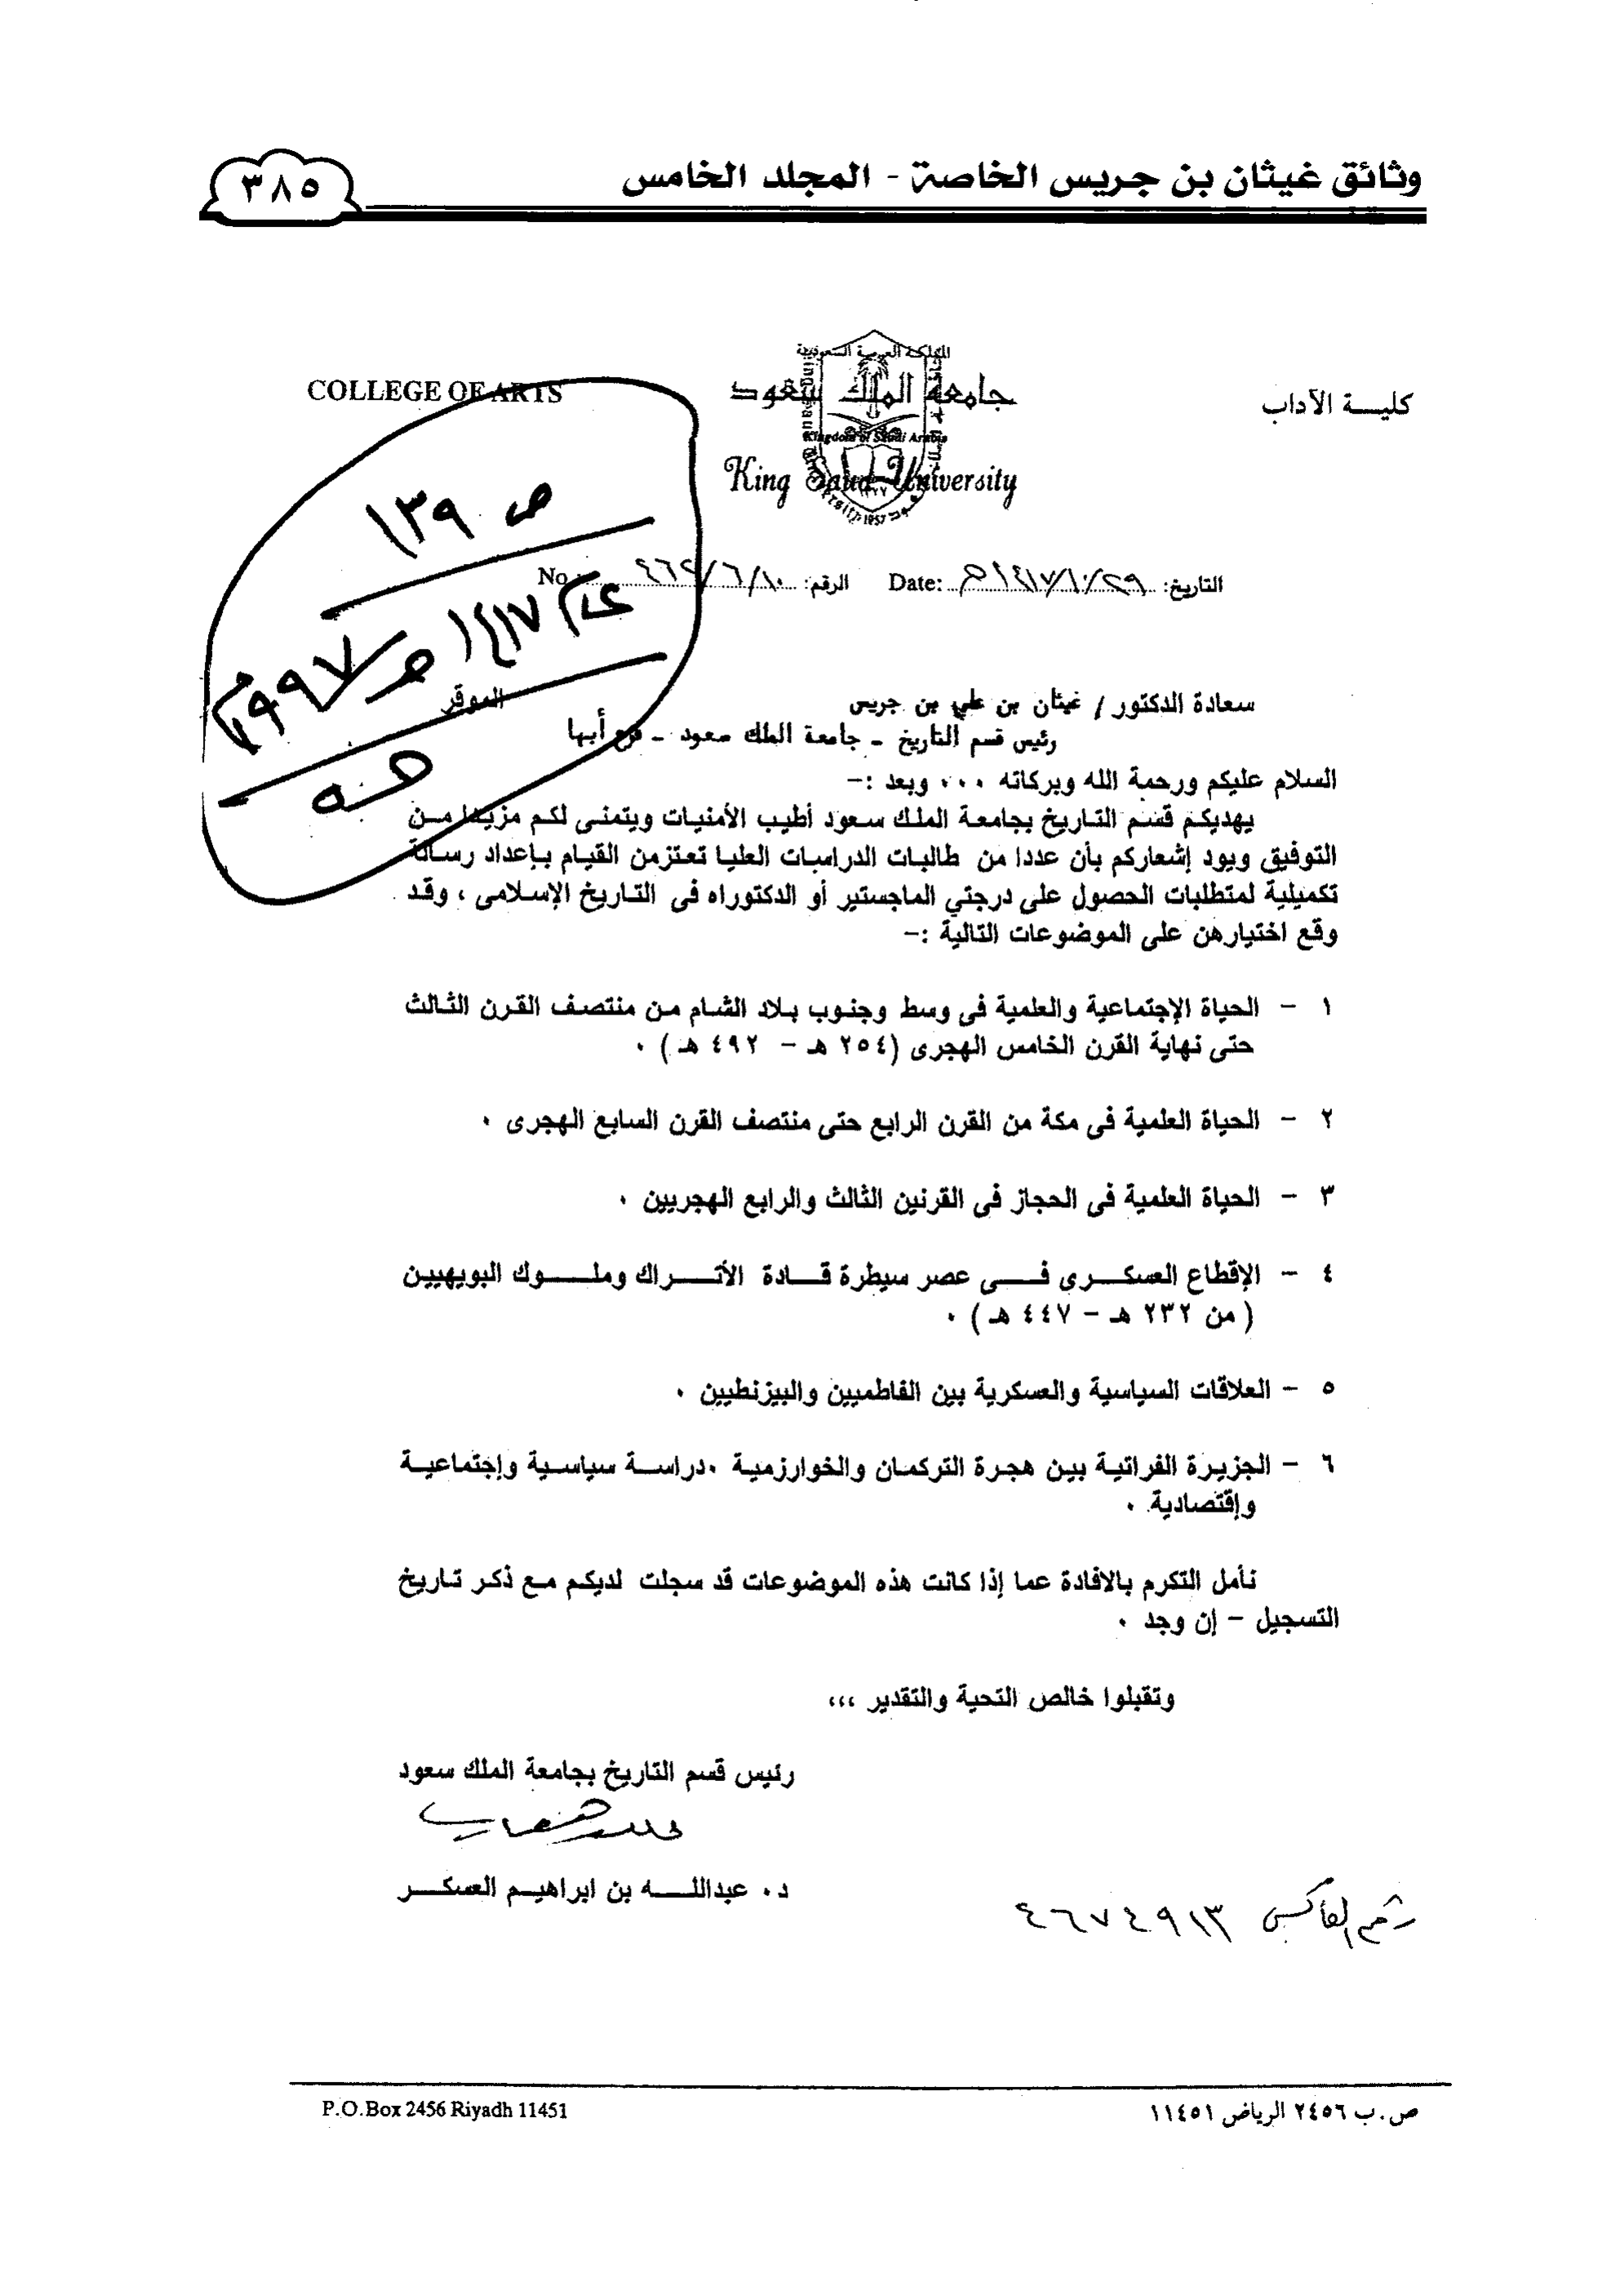 وثائق غيثان بن جريس الخاصة - المجلد الخامس
٣٨٥
كليـــة الآداب
المملكة العربية السعودية
جامعة الملك سعود
Kingdom of Saudi Arabia
King Saud University
1957
COLLEGE OF ARTS
ص ١٣٩
التاريخ: ١٤١٧/١٠/٢٩هـ Date:
الرقم: No
سعادة الدكتور / غيثان بن علي بن جريس الموقر
رئيس قسم التاريخ ـ جامعة الملك سعود ـ فرع أبها
السلام عليكم ورحمة الله وبركاته ٠٠٠ وبعد :-
يهديكم قسم التاريخ بجامعة الملك سعود أطيب الأمنيات ويتمنى لكم مزيدا من
التوفيق ويود إشعاركم بأن عددا من طالبات الدراسات العليا تعتزمن القيام بإعداد رسالة
تكميلية لمتطلبات الحصول على درجتي الماجستير أو الدكتوراه فى التاريخ الإسلامى ، وقد
وقع اختيارهن على الموضوعات التالية :-
١ - الحياة الإجتماعية والعلمية فى وسط وجنوب بلاد الشام من منتصف القرن الثالث
حتى نهاية القرن الخامس الهجرى (٢٥٤ هـ - ٤٩٢ هـ ) ٠
٢ - الحياة العلمية فى مكة من القرن الرابع حتى منتصف القرن السابع الهجرى ٠
٣ - الحياة العلمية فى الحجاز فى القرنين الثالث والرابع الهجريين ٠
٤ - الإقطاع العسكـــرى فـــى عصر سيطرة قـــادة الأتـــراك وملـــوك البويهيين
( من ٢٣٢ هـ - ٤٤٧ هـ ) ٠
٥ - العلاقات السياسية والعسكرية بين الفاطميين والبيزنطيين ٠
٦ - الجزيرة الفراتية بين هجرة التركمان والخوارزمية ٠دراسة سياسية وإجتماعية
وإقتصادية ٠
نأمل التكرم بالافادة عما إذا كانت هذه الموضوعات قد سجلت لديكم مع ذكر تاريخ
التسجيل - إن وجد ٠
وتقبلوا خالص التحية والتقدير ،،،
رئيس قسم التاريخ بجامعة الملك سعود
د٠ عبداللـــه بن ابراهيم العسكـــر
رقم الفاكس ٤٦٧٤٩١٣
ص.ب ٢٤٥٦ الرياض ١١٤٥١
P.O.Box 2456 Riyadh 11451